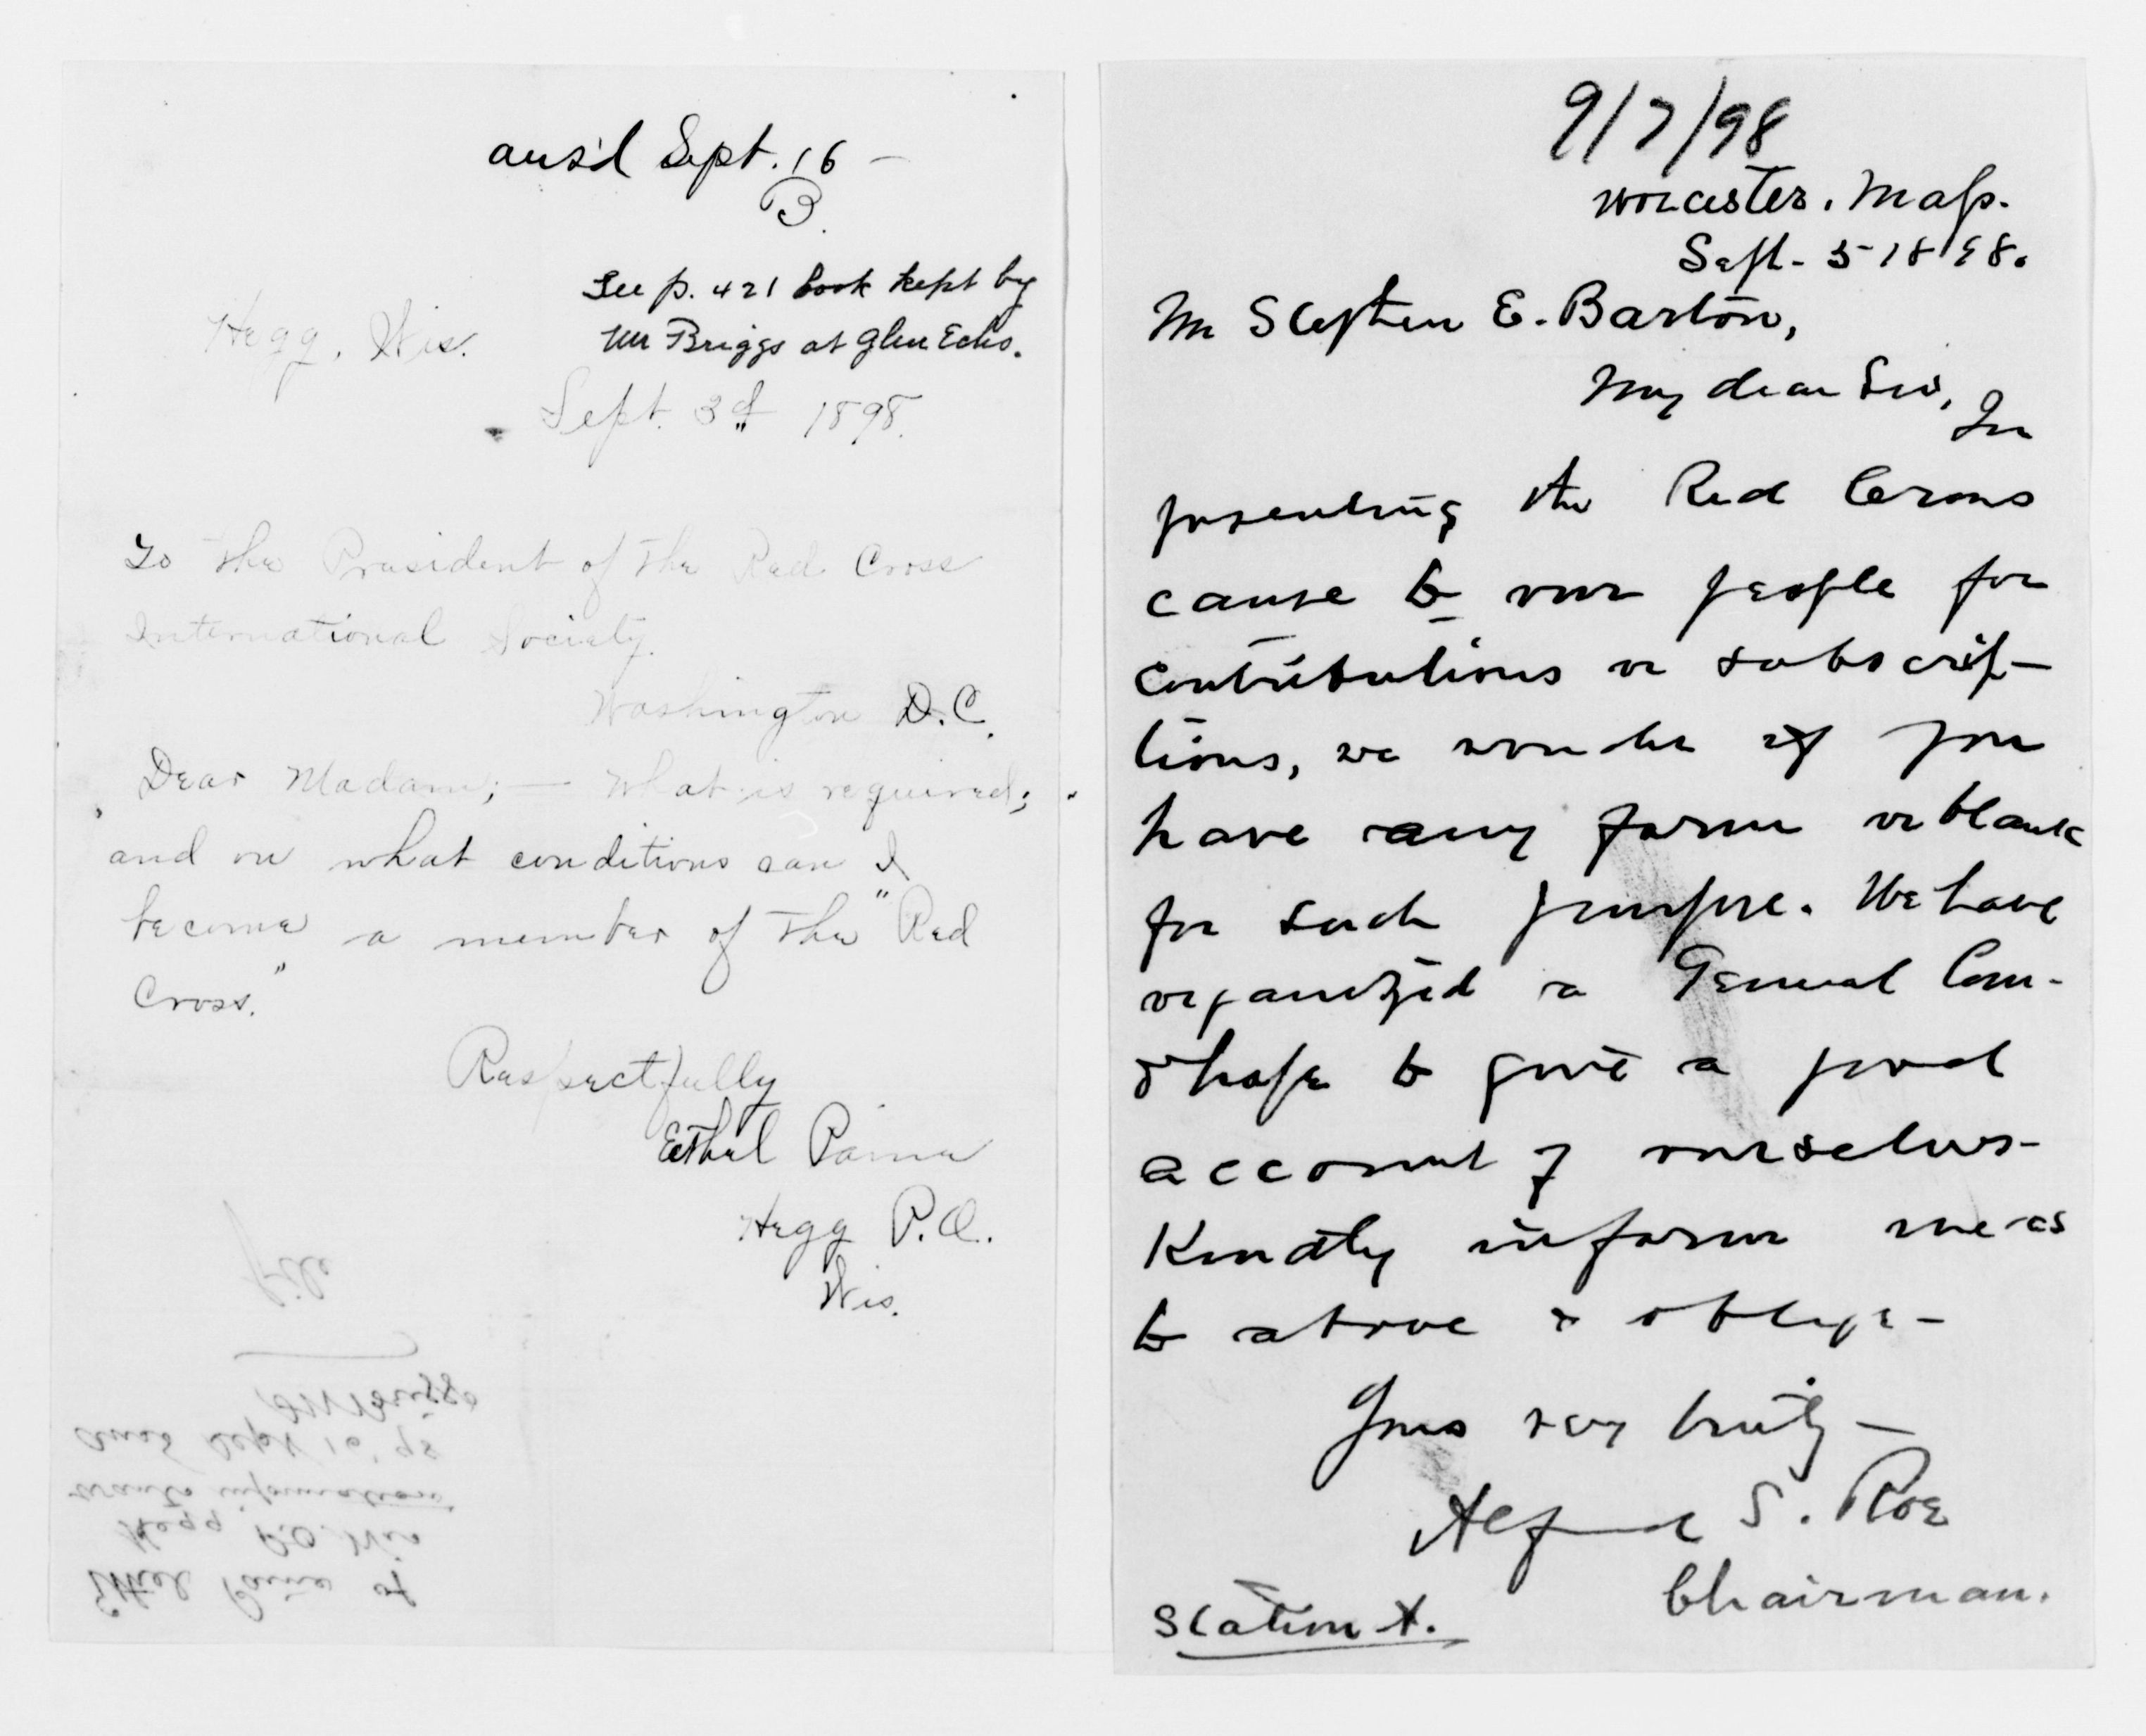 ans'd Sept. 16 –
B.
See p. 421 book kept by
Mr Briggs at Glen Echo.
Hegg, Wis.
Sept. 3d 1898.
To the President of the Red Cross
International Society.
Washington D.C.
Dear Madam; — What is required;
and on what conditions can I
become a member of the "Red
Cross."
Respectfully
Ethel Paine
Hegg P.O.
Wis.
file
Ethel Paine of
Hegg P.O. Wis
wants information
Ans'd Sept 16 '98
Briggs
9/7/98
Worcester, Mass.
Sept. 5 1898.
Mr Stephen E. Barton,
My dear Sir, In
presenting the Red Cross
cause to our people for
contributions or subscrip-
tions, we wonder if you
have any form or blank
for such purpose. We have
organized a General Com.
& hope to give a good
account of ourselves –
Kindly inform me as
to above & oblige –
Yours very truly –
Alfred S. Roe
Chairman.
Station A.